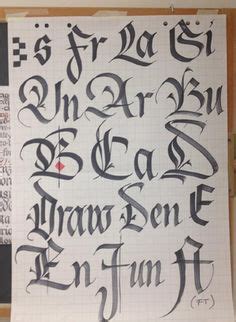 s Fr La Si
Un Ar Bu
B Ca D
Draw Den E
En Jun A
(FT)